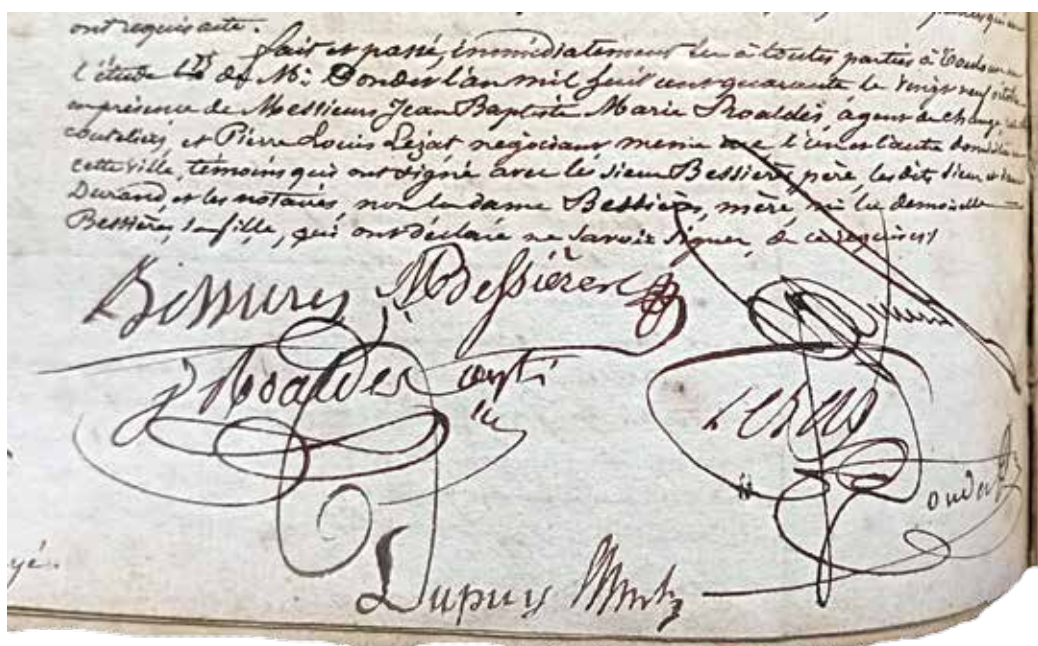 ont requis acte.
fait et passé, immédiatement lu à toutes parties à Toulouse
l'étude de M: Dondet l'an mil huit cent quarante le vingt neuf octobre
en présence de Messieurs Jean Baptiste Marie Roaldès agent de change
couteliers, et Pierre Louis Lezat négociant même rue l'un et l'autre domiciliés
cette ville, témoins qui ont signé avec le sieur Bessières père, les dits sieur et
Durand, et les notaires non la dame Bessières, mère, ni la demoiselle
Bessières, sa fille, qui ont déclaré ne savoir signer, de ce requises
Bessieres MBessières
J Roaldès
Lezat
Dupuy
yé.